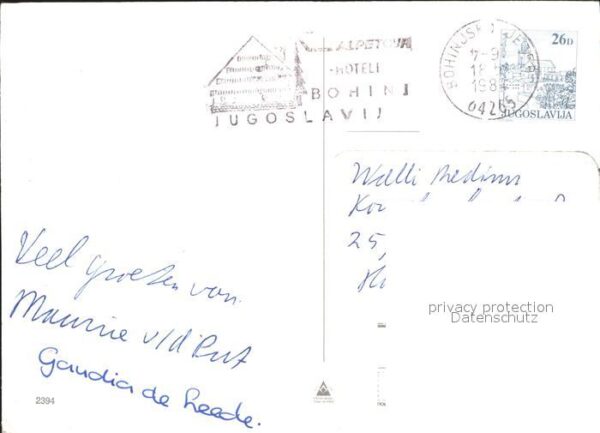 ALPETOUR
HOTELI
BOHINJ
JUGOSLAVIJ
BOHINJSKO JEZERO
7-9
18
198
64265
26D
JUGOSLAVIJA
Walli
25,
privacy protection
Datenschutz
Veel groeten van
Maurice v/d Put
Gaudia de Leede.
2394